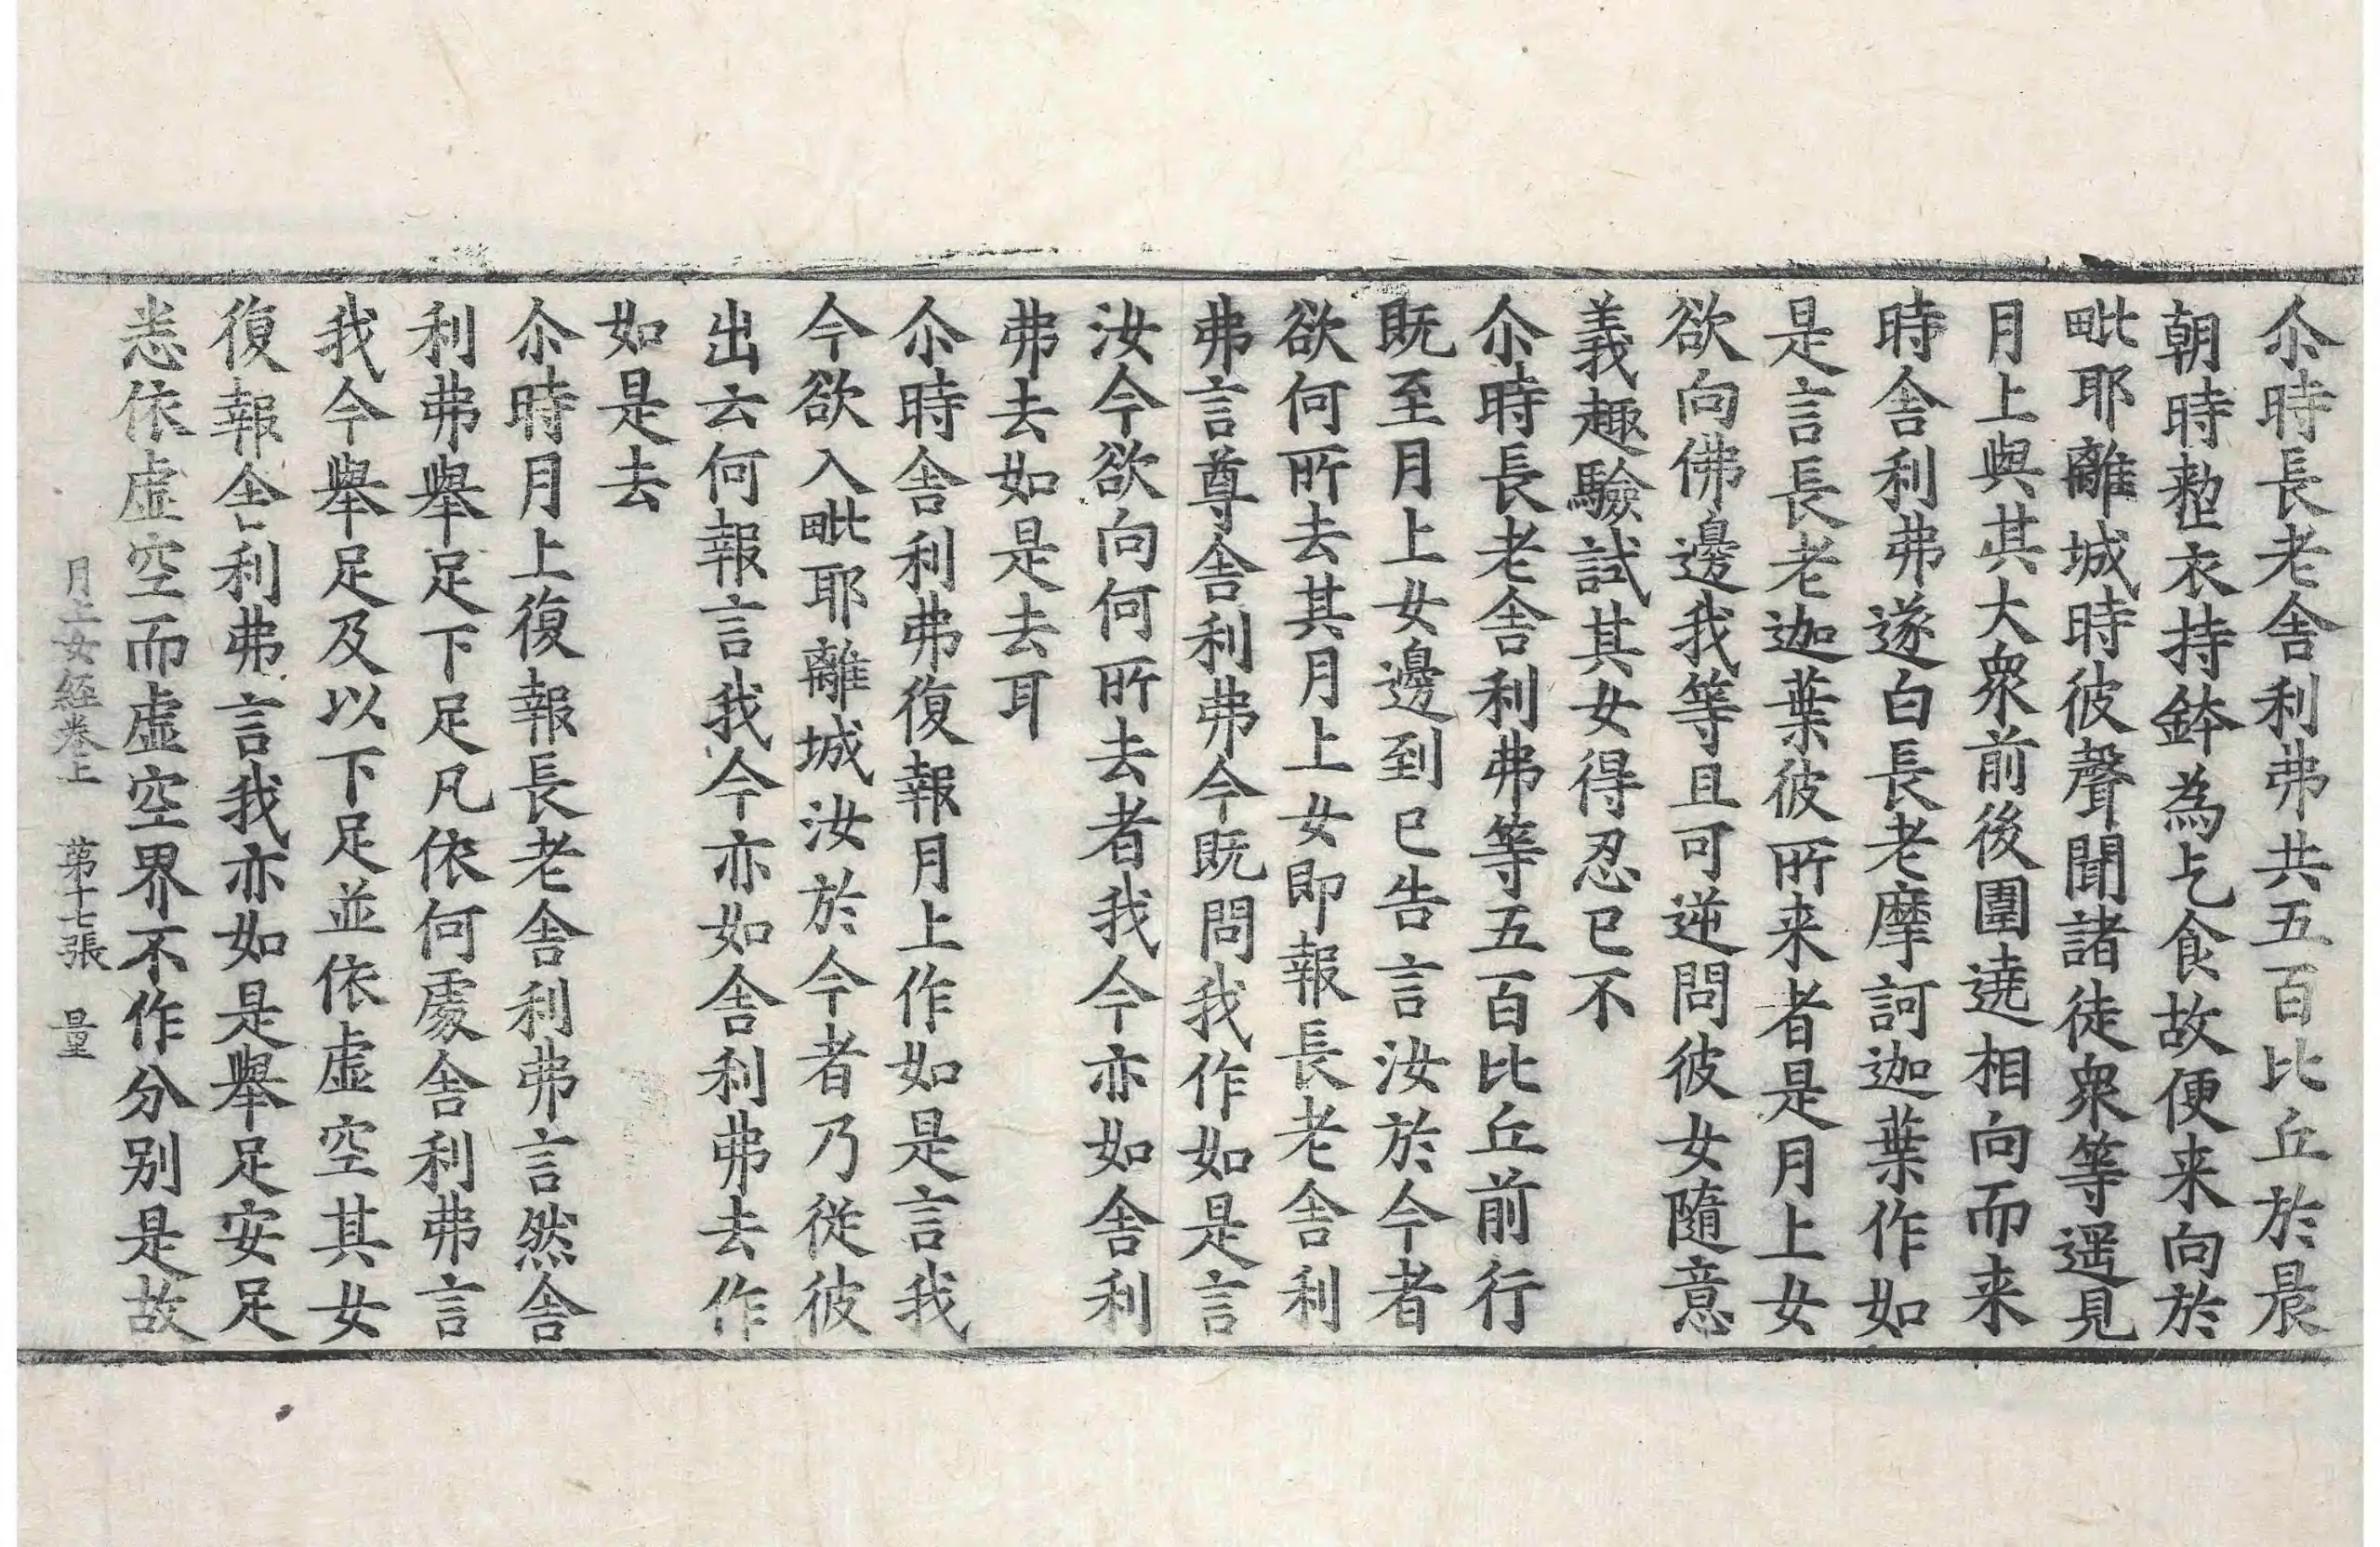 尒時長老舎利弗共五百比丘於晨
朝時整衣持鉢為乞食故便来向於
毗耶離城時彼聲聞諸徒衆等遥見
月上與其大衆前後圍遶相向而来
時舎利弗遂白長老摩訶迦葉作如
是言長老迦葉彼所来者是月上女
欲向佛邊我等且可逆問彼女隨意
義趣驗試其女得忍已不
尒時長老舎利弗等五百比丘前行
既至月上女邊到已告言汝於今者
欲何所去其月上女即報長老舎利
弗言尊舎利弗今既問我作如是言
汝今欲向何所去者我今亦如舎利
弗去如是去耳
尒時舎利弗復報月上作如是言我
今欲入毗耶離城汝於今者乃從彼
出云何報言我今亦如舎利弗去作
如是去
尒時月上復報長老舎利弗言然舎
利弗舉足下足凡依何處舎利弗言
我今舉足及以下足並依虛空其女
復報舎利弗言我亦如是舉足安足
悉依虛空而虛空界不作分别是故
月上女經卷上 第十七張 量